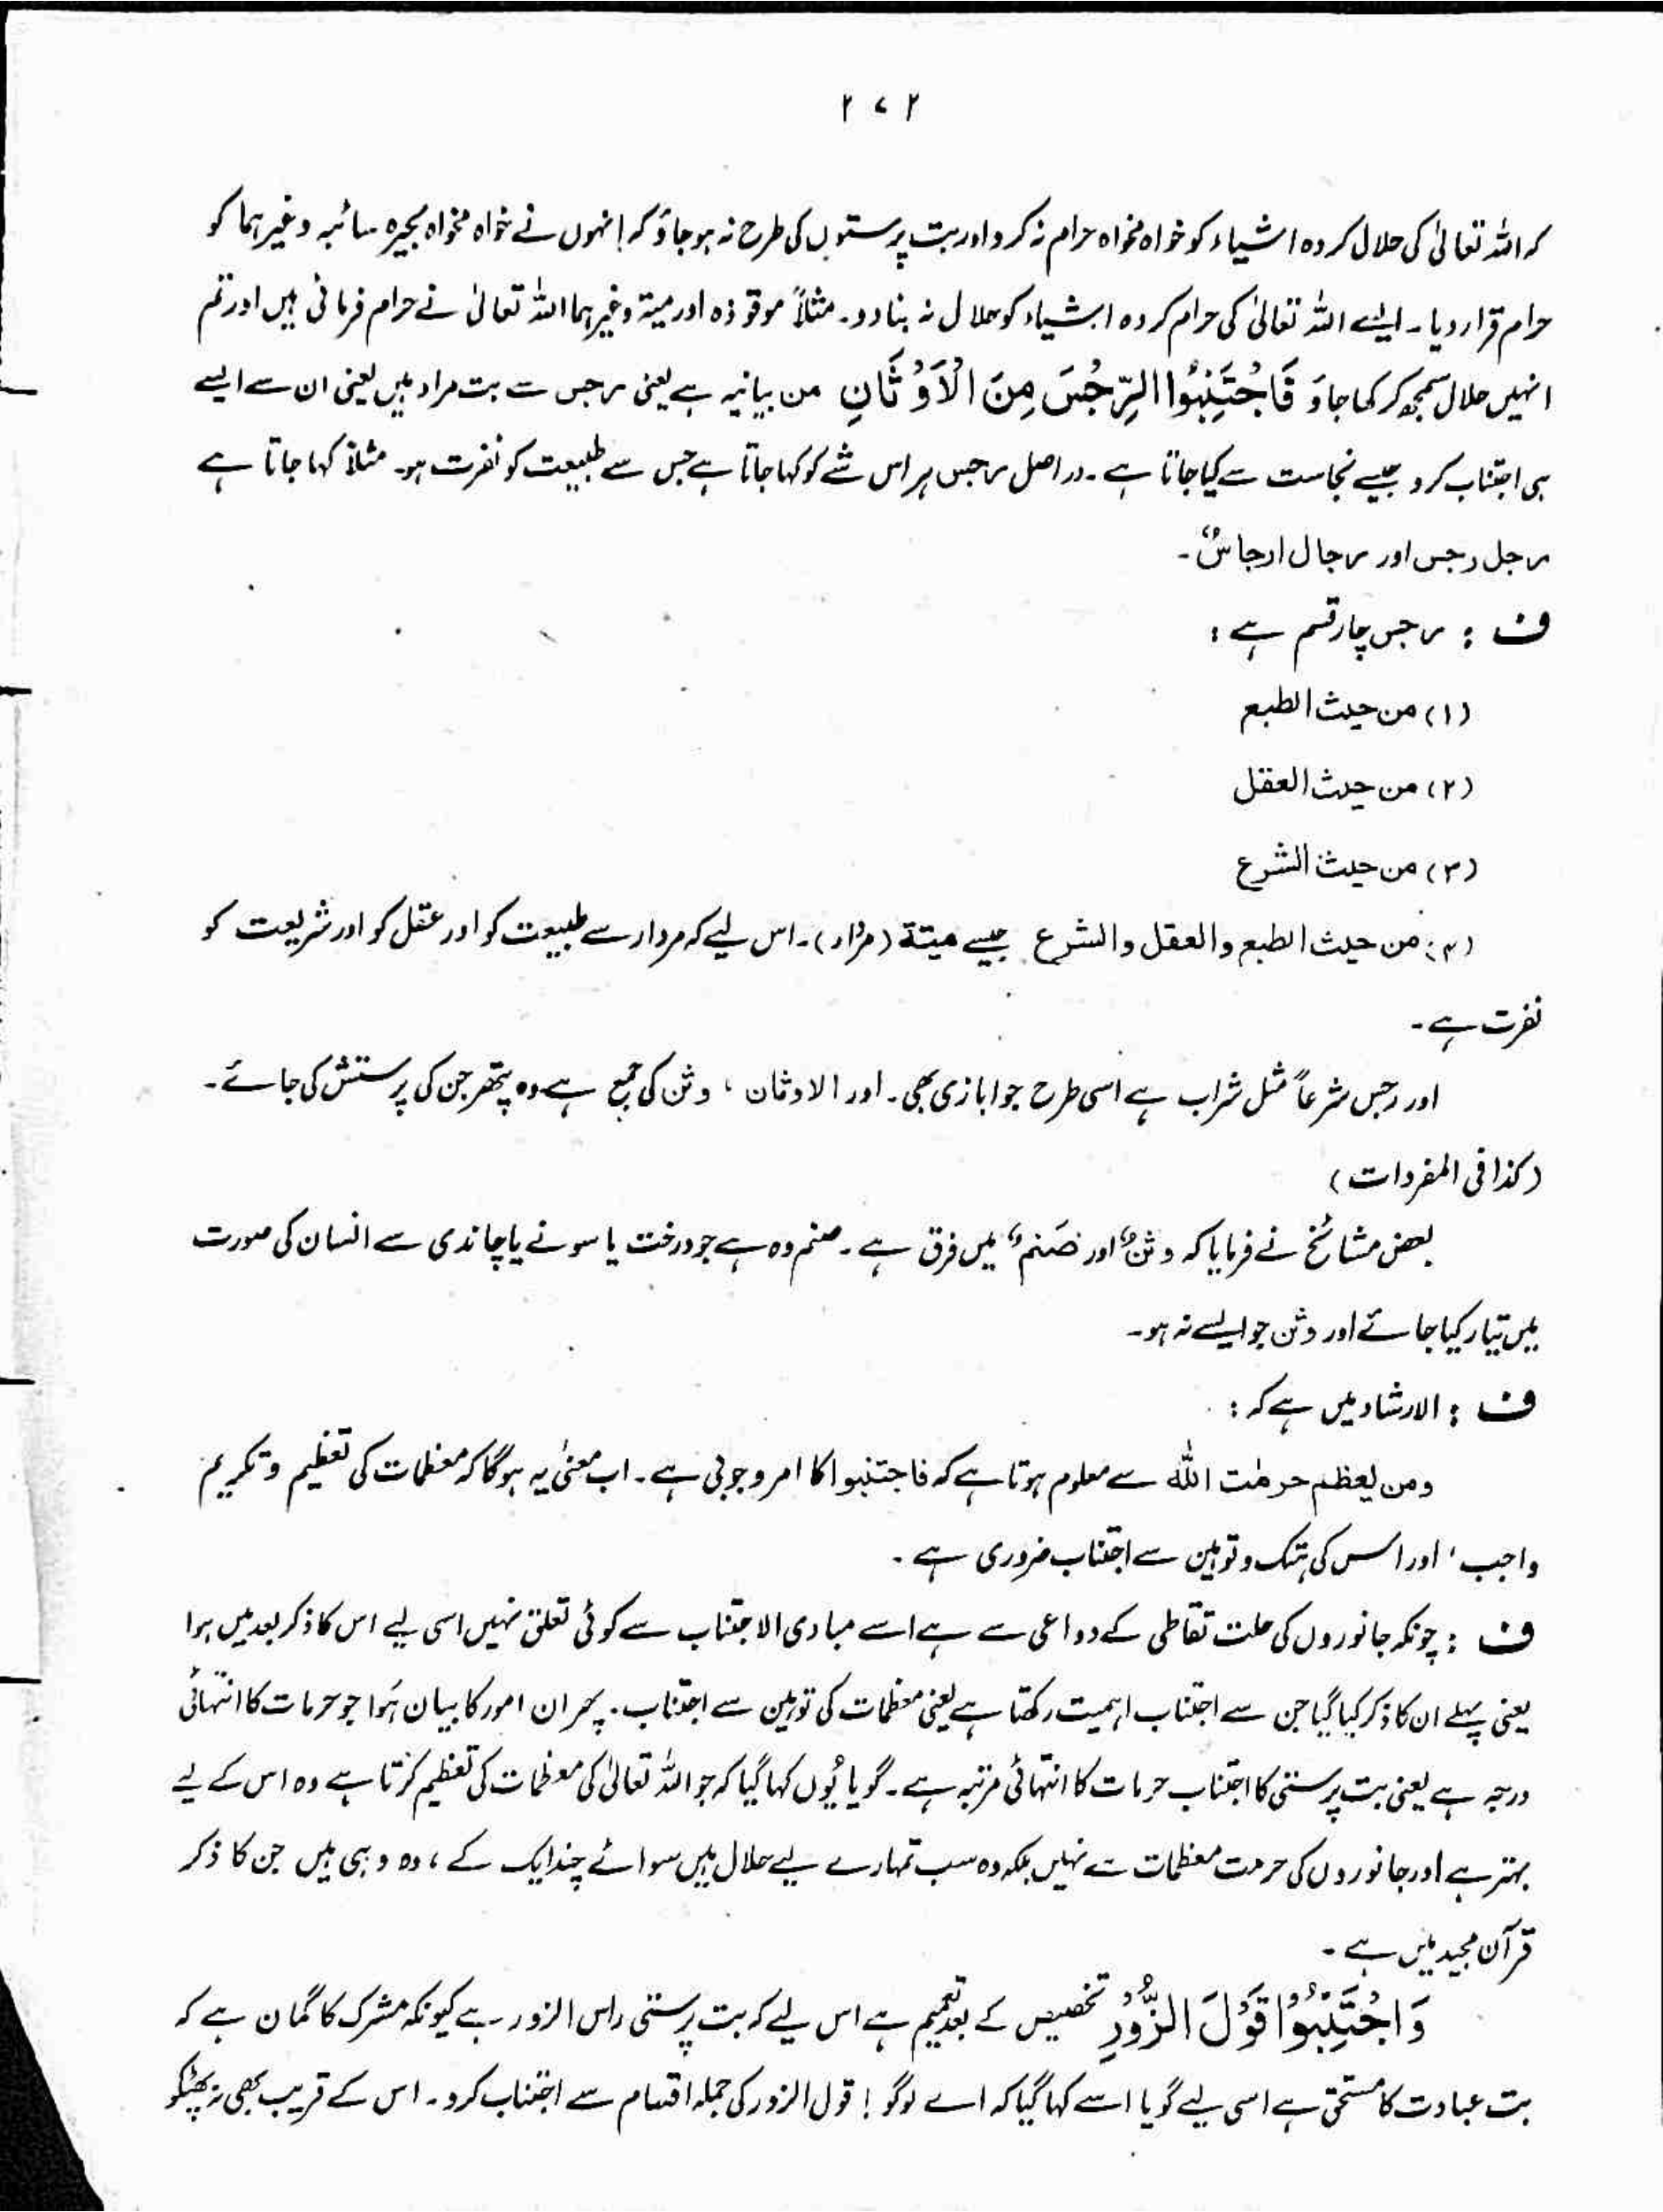 ۲۷۲
کہ اللہ تعالیٰ کی حلال کردہ اشیاء کو خواہ مخواہ حرام نہ کرو اور بت پرستوں کی طرح نہ ہو جاؤ کہ انہوں نے خواہ مخواہ بحیرہ سائبہ وغیرہما کو
حرام قرار دیا۔ ایسے اللہ تعالیٰ کی حرام کردہ اشیاء کو حلال نہ بنا دو۔ مثلاً موقوذہ اور میتۃ وغیرہما اللہ تعالیٰ نے حرام فرمائی ہیں اور تم
انہیں حلال سمجھ کر کھا جاؤ فَاجْتَنِبُوا الرِّجْسَ مِنَ الْاَوْثَانِ من بیانیہ ہے یعنی رجس سے بت مراد ہیں یعنی ان سے ایسے
ہی اجتناب کرو جیسے نجاست سے کیا جاتا ہے۔ دراصل رجس ہر اس شے کو کہا جاتا ہے جس سے طبیعت کو نفرت ہو۔ مثلاً کہا جاتا ہے
رجل رجس اور رجال ارجاسٌ۔
ف : رجس چار قسم ہے :
(۱) من حیث الطبع
(۲) من حیث العقل
(۳) من حیث الشرع
(۴) من حیث الطبع والعقل والشرع جیسے میتۃ (مردار)۔ اس لیے کہ مردار سے طبیعت کو اور عقل کو اور شریعت کو
نفرت ہے۔
اور رجس شرعاً مثل شراب ہے اسی طرح جوا بازی بھی۔ اور الاوثان ، وثن کی جمع ہے وہ پتھر جن کی پرستش کی جائے۔
(کذا فی المفردات)
بعض مشائخ نے فرمایا کہ وثنٌ اور صَنمٌ میں فرق ہے۔ صنم وہ ہے جو درخت یا سونے یا چاندی سے انسان کی صورت
میں تیار کیا جائے اور وثن جو ایسے نہ ہو۔
ف : الارشاد میں ہے کہ :
ومن یعظم حرمٰت اللہ سے معلوم ہوتا ہے کہ فاجتنبوا کا امر وجوبی ہے۔ اب معنیٰ یہ ہوگا کہ معظمات کی تعظیم و تکریم
واجب ، اور اس کی ہتک و توہین سے اجتناب ضروری ہے۔
ف : چونکہ جانوروں کی حلت تقاطی کے دواعی سے ہے اسے مبادی الاجتناب سے کوئی تعلق نہیں اسی لیے اس کا ذکر بعد میں ہوا
یعنی پہلے ان کا ذکر کیا گیا جن سے اجتناب اہمیت رکھتا ہے یعنی معظمات کی توہین سے اجتناب۔ پھر ان امور کا بیان ہُوا جو حرمات کا انتہائی
درجہ ہے یعنی بت پرستی کا اجتناب حرمات کا انتہائی مرتبہ ہے۔ گویا یُوں کہا گیا کہ جو اللہ تعالیٰ کی معظمات کی تعظیم کرتا ہے وہ اس کے لیے
بہتر ہے اور جانوروں کی حرمت معظمات سے نہیں بلکہ وہ سب تمہارے لیے حلال ہیں سوائے چند ایک کے ، وہ وہی ہیں جن کا ذکر
قرآن مجید میں ہے۔
وَاجْتَنِبُوْا قَوْلَ الزُّوْرِ تخصیص کے بعد تعمیم ہے اس لیے کہ بت پرستی راس الزور ہے کیونکہ مشرک کا گمان ہے کہ
بت عبادت کا مستحق ہے اسی لیے گویا اسے کہا گیا کہ اے لوگو ! قول الزور کی جملہ اقسام سے اجتناب کرو۔ اس کے قریب بھی نہ پھٹکو